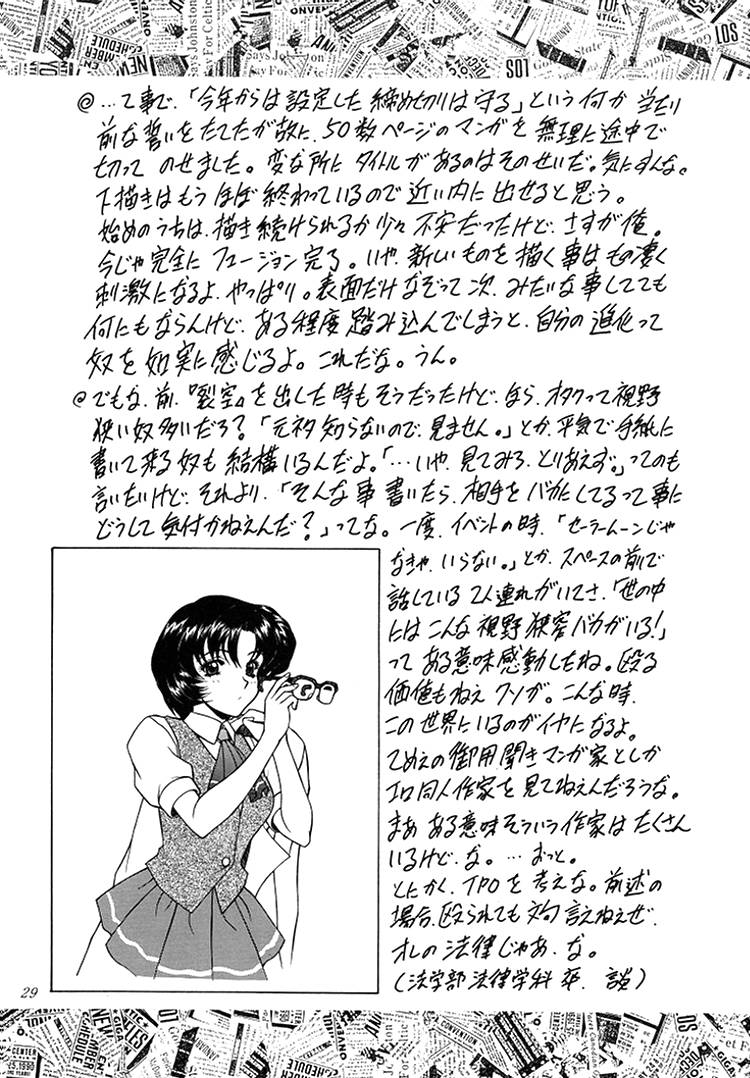 @…て事で、「今年からは設定した締め切りは守る」という何か当たり
前な誓いをたてたが故に、50数ページのマンガを無理に途中で
切ってのせました。変な所にタイトルがあるのはそのせいだ。気にすんな。
下描きはもうほぼ終わっているので近い内に出せると思う。
始めのうちは、描き続けられるか少々不安だったけど、さすが俺。
今じゃ完全にフュージョン完了。いや、新しいものを描く事はもの凄く
刺激になるよ、やっぱり。表面だけなぞって次、みたいな事してても
何にもならんけど、ある程度踏み込んでしまうと、自分の進化って
奴を如実に感じるよ。これだな。うん。
@でもな、前、『裂空』を出した時もそうだったけど、なら、オタクって視野
狭い奴多いだろ?「元ネタ知らないので、見ません。」とか、平気で手紙に
書いて来る奴も結構いるんだよ。「…いや、見てみろ、とりあえず。」ってのも
言いたいけど、それより、「そんな事書いたら、相手をバカにしてるって事に
どうして気付かねえんだ?」ってな。一度、イベントの時、「セーラームーンじゃ
なきゃ、いらない。」とか、スペースの前で
話している2人連れがいてさ、「世の中
にはこんな視野狭窄バカがいる!」
ってある意味感動したね。殴る
価値もねえクソが。こんな時、
この世界にいるのがイヤになるよ。
てめえの御用聞きマンガ家としか
エロ同人作家を見てねえんだろうな。
まあ ある意味そういう作家はたくさん
いるけど、な。…おっと。
とにかく、TPOを考えな。前述の
場合、殴られても文句言えねえぜ、
オレの法律じゃあ、な。
(法学部法律学科卒、談)
29